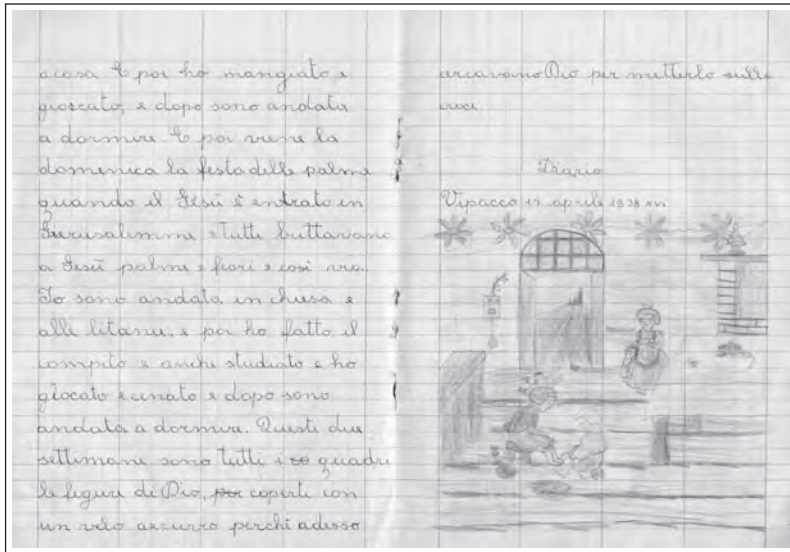 a casa E poi ho mangiato e
gioccato, e dopo sono andata
a dormire E poi viene la
domenica la festa delle palme
quando il Gesù è entrato in
Gerusalemme e tutti buttavano
a Gesù palme e fiori e così via.
Io sono andata in chiesa e
alle litanie, e poi ho fatto il
compito e anche studiato e ho
giocato e cenato e dopo sono
andata a dormire. Queste due
settimane sono tutti i quadri
le figure di Dio, coperte con
un velo azzurro perchè adesso
cercavano Dio per metterlo sulla
croce.
Diario
Vipacco 11 aprile 1938 XVI